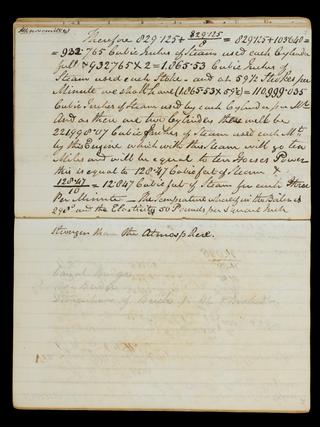 Therefore 829.125 + 829.125/8 = 829.125 + 103.640 =
= 932.765 Cubic Inches of Steam used each Cylinder
full & 932765 X 2 = 1.865.53 Cubic Inches of
Steam used each Stroke. and at 59½ Strokes per
Minute we shall have (1.865.53 X 59½) = 110.999.035
Cubic Inches of Steam used by each Cylinder per Mt
And as there are two Cylinders there will be
221998.07 Cubic Inches of Steam used each Mt
by this Engine which with this Steam will go ten
Miles and will be equal to ten Horses Power
this is equal to 128.47 Cubic feet of Steam &
128.47/10 = 12.847 Cubic feet of Steam for each Horse
Per Minute — The Temperature in the Boiler is
290° and the Elasticity 50 Pounds per Square Inch
stronger than the Atmosphere.